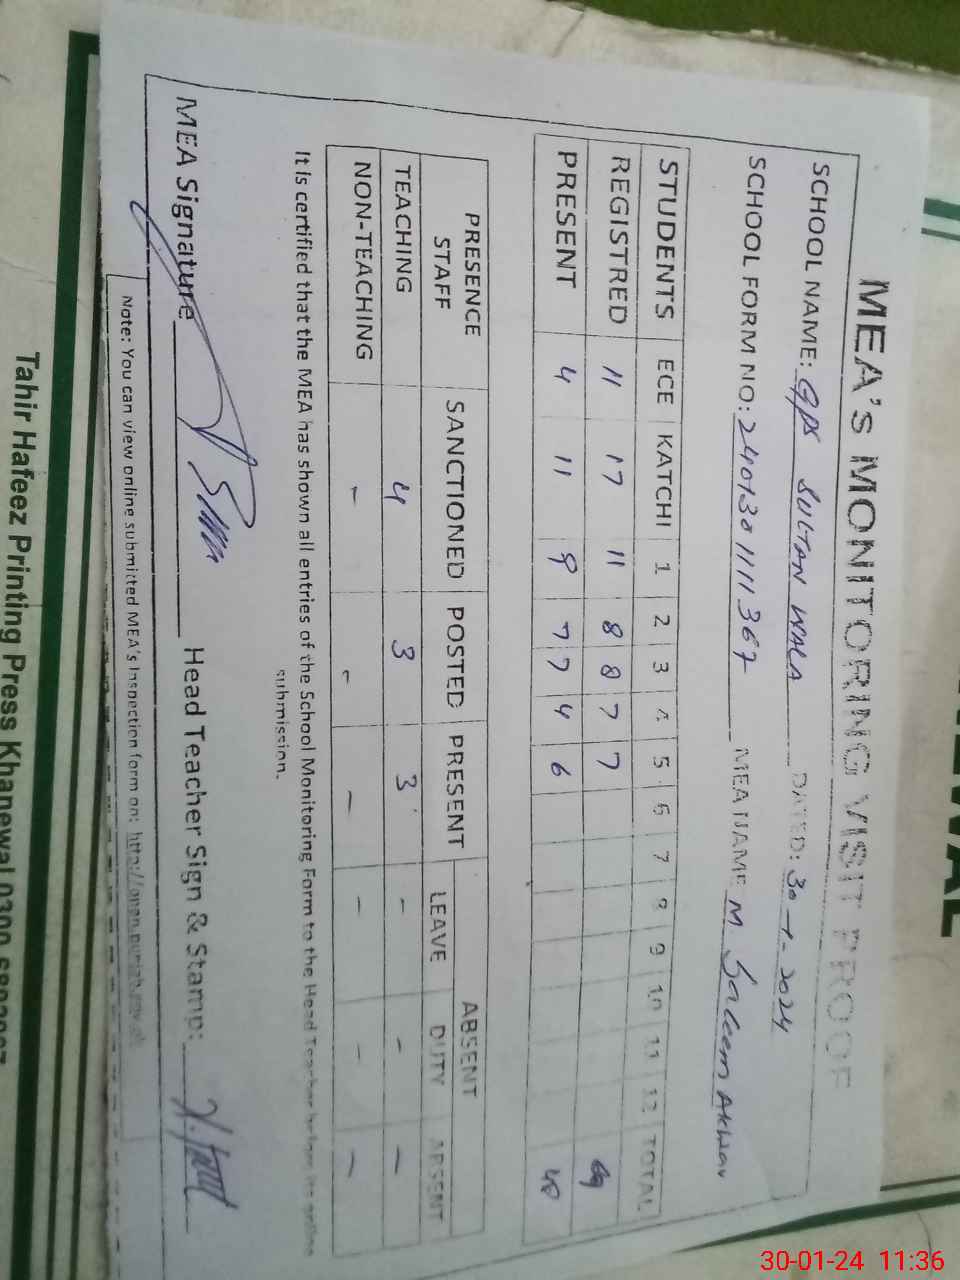 MEA'S MONITORING VISIT PROOF
SCHOOL NAME: GPS SULTAN WALA DATED: 30-1-2024
SCHOOL FORM NO: 24013011111367 MEA NAME M Saleem Akhtar
STUDENTS ECE KATCHI 1 2 3 4 5 6 7 8 9 10 11 12 TOTAL
REGISTRED 11 17 11 8 8 7 7 69
PRESENT 4 11 9 7 7 4 6 48
PRESENCE STAFF SANCTIONED POSTED PRESENT ABSENT
LEAVE DUTY ABSENT
TEACHING 4 3 3 - - -
NON-TEACHING - - - - - -
It is certified that the MEA has shown all entries of the School Monitoring Form to the Head Teacher before its online
submission.
MEA Signature Head Teacher Sign & Stamp:
Note: You can view online submitted MEA's Inspection form on: http://open.punjab.gov.pk
Tahir Hafeez Printing Press Khanewal 0300
30-01-24 11:36